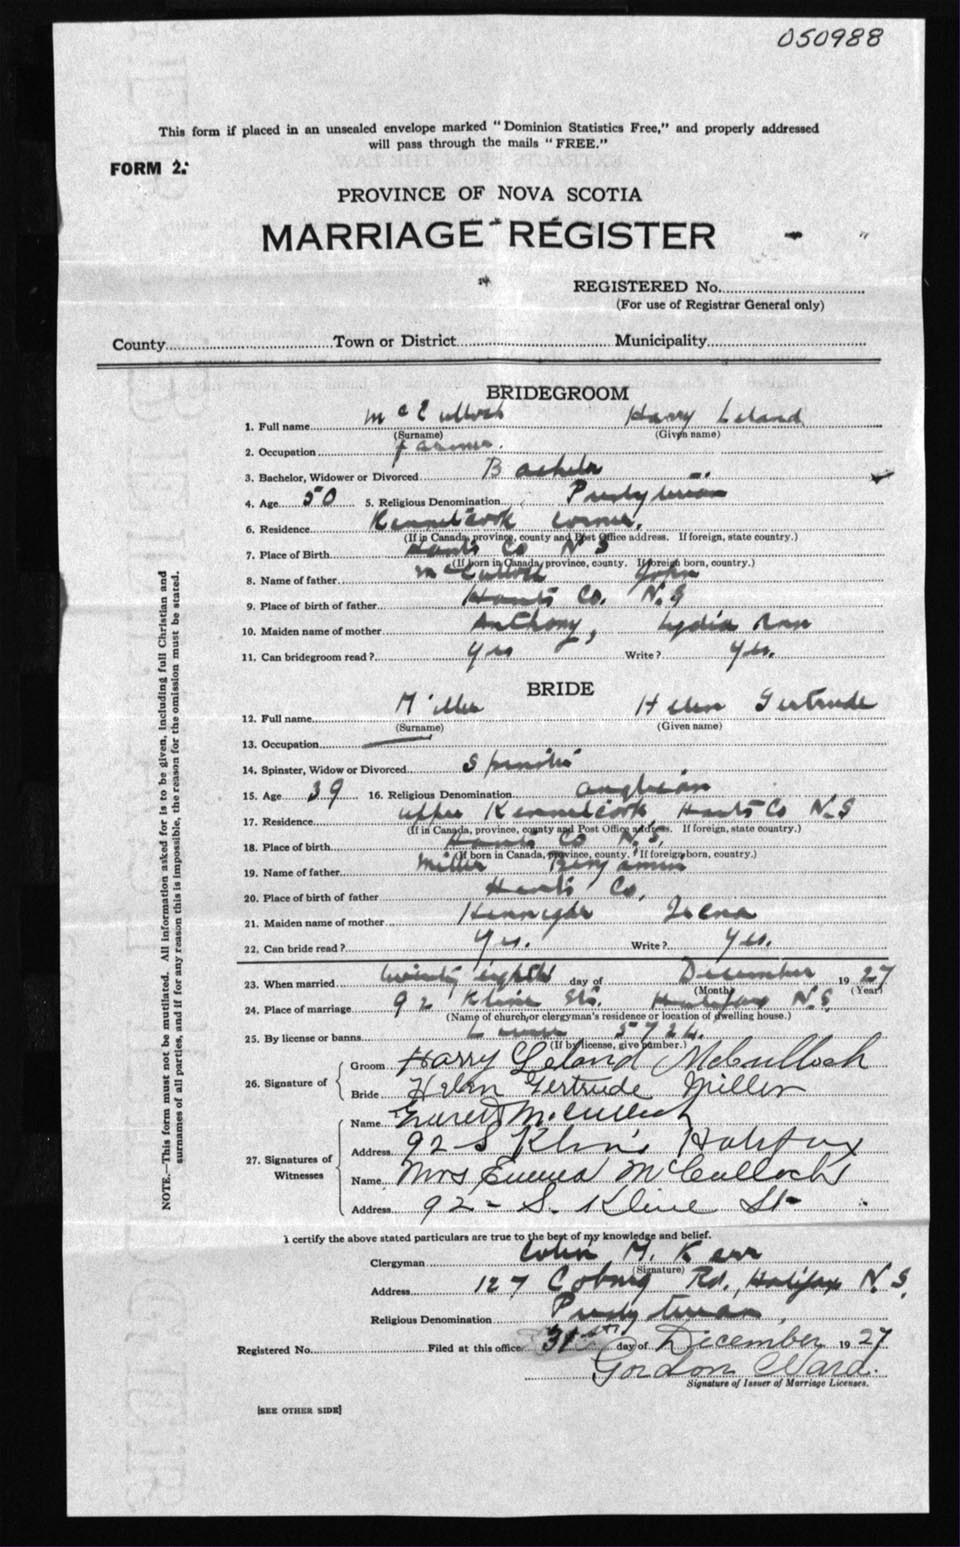 050988
This form if placed in an unsealed envelope marked "Dominion Statistics Free," and properly addressed
will pass through the mails "FREE."
FORM 2.
PROVINCE OF NOVA SCOTIA
MARRIAGE REGISTER
REGISTERED No.
(For use of Registrar General only)
County Town or District Municipality
BRIDEGROOM
1. Full name McCulloch Harry Leland
(Surname) (Given name)
2. Occupation farmer.
3. Bachelor, Widower or Divorced Bachelor
4. Age 50 5. Religious Denomination Presbyterian
6. Residence Kennetcook Corner,
(If in Canada, province, county and Post Office address. If foreign, state country.)
7. Place of Birth Hants Co N S
(If born in Canada, province, county. If foreign born, country.)
8. Name of father McCulloch John
9. Place of birth of father Hants Co. N.S
10. Maiden name of mother Anthony, Lydia Ann
11. Can bridegroom read? yes Write? yes.
BRIDE
12. Full name Miller Helen Gertrude
(Surname) (Given name)
13. Occupation
14. Spinster, Widow or Divorced Spinster
15. Age 39 16. Religious Denomination Anglican
17. Residence Upper Kennetcook Hants Co N.S
(If in Canada, province, county and Post Office address. If foreign, state country.)
18. Place of birth Hants Co N.S.
(If born in Canada, province, county. If foreign born, country.)
19. Name of father Miller Benjamin
20. Place of birth of father Hants Co.
21. Maiden name of mother
22. Can bride read? Yes. Write? Yes.
23. When married twenty eighth day of December 1927
(Month) (Year)
24. Place of marriage 92 Kline St. Halifax N.S.
(Name of church, or clergyman's residence or location of dwelling house.)
25. By license or banns License 5724.
(If by license, give number.)
26. Signature of
Groom Harry Leland McCulloch
Bride Helen Gertrude Miller
27. Signatures of Witnesses
Name McCulloch
Address 92 S Kline Halifax
Name Mrs Emma McCulloch
Address 92 - S. Kline St
NOTE.—This form must not be mutilated. All information asked for is to be given, including full Christian and
surnames of all parties, and if for any reason this is impossible, the reason for the omission must be stated.
I certify the above stated particulars are true to the best of my knowledge and belief.
Clergyman Colin M. Kerr
(Signature)
Address 127 Coburg Rd., Halifax N.S.
Religious Denomination Presbyterian
Registered No. Filed at this office 31st day of December 1927
Gordon Ward.
Signature of Issuer of Marriage Licenses.
[SEE OTHER SIDE]